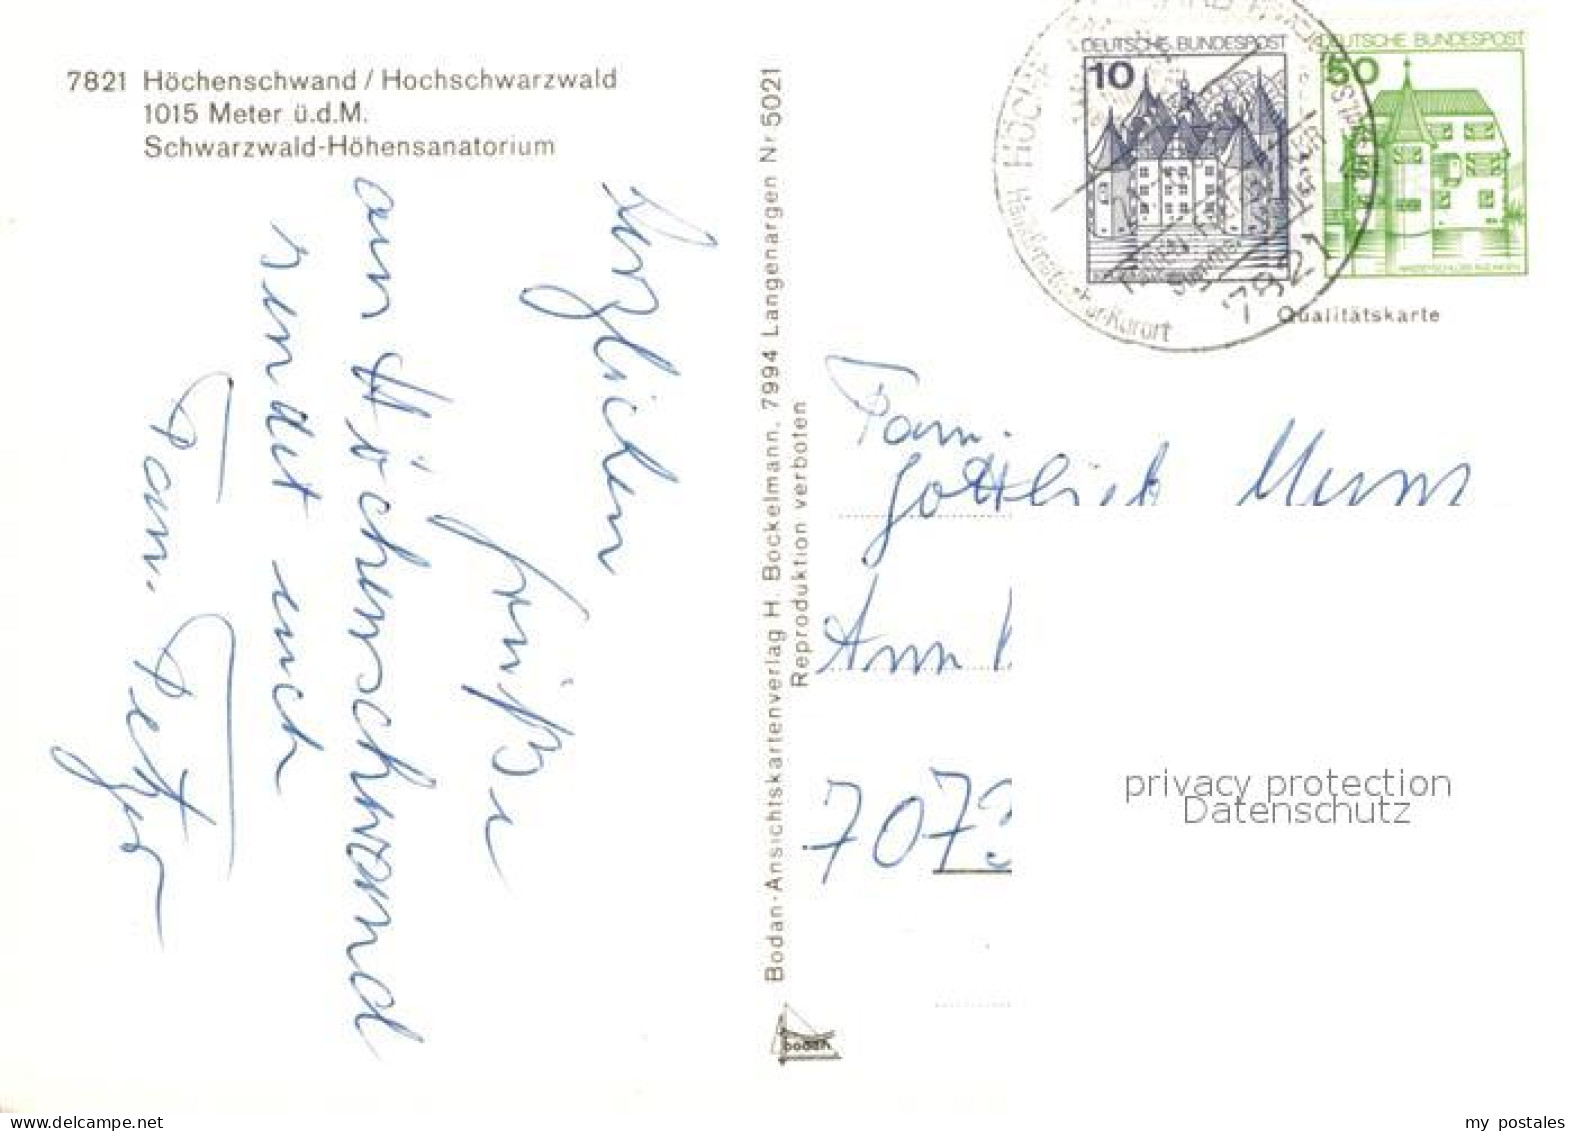 7821 Höchenschwand / Hochschwarzwald
1015 Meter ü.d.M.
Schwarzwald-Höhensanatorium
Herzlichen
Grüße
an Höchenschwand
sendet euch
Fam.
Bodan-Ansichtskartenverlag H. Bockelmann, 7994 Langenargen Nr 5021
Reproduktion verboten
bodan
DEUTSCHE BUNDESPOST
10
DEUTSCHE BUNDESPOST
50
7821
Qualitätskarte
Fam.
Gottlieb
707
privacy protection
Datenschutz
delcampe.net
my postales